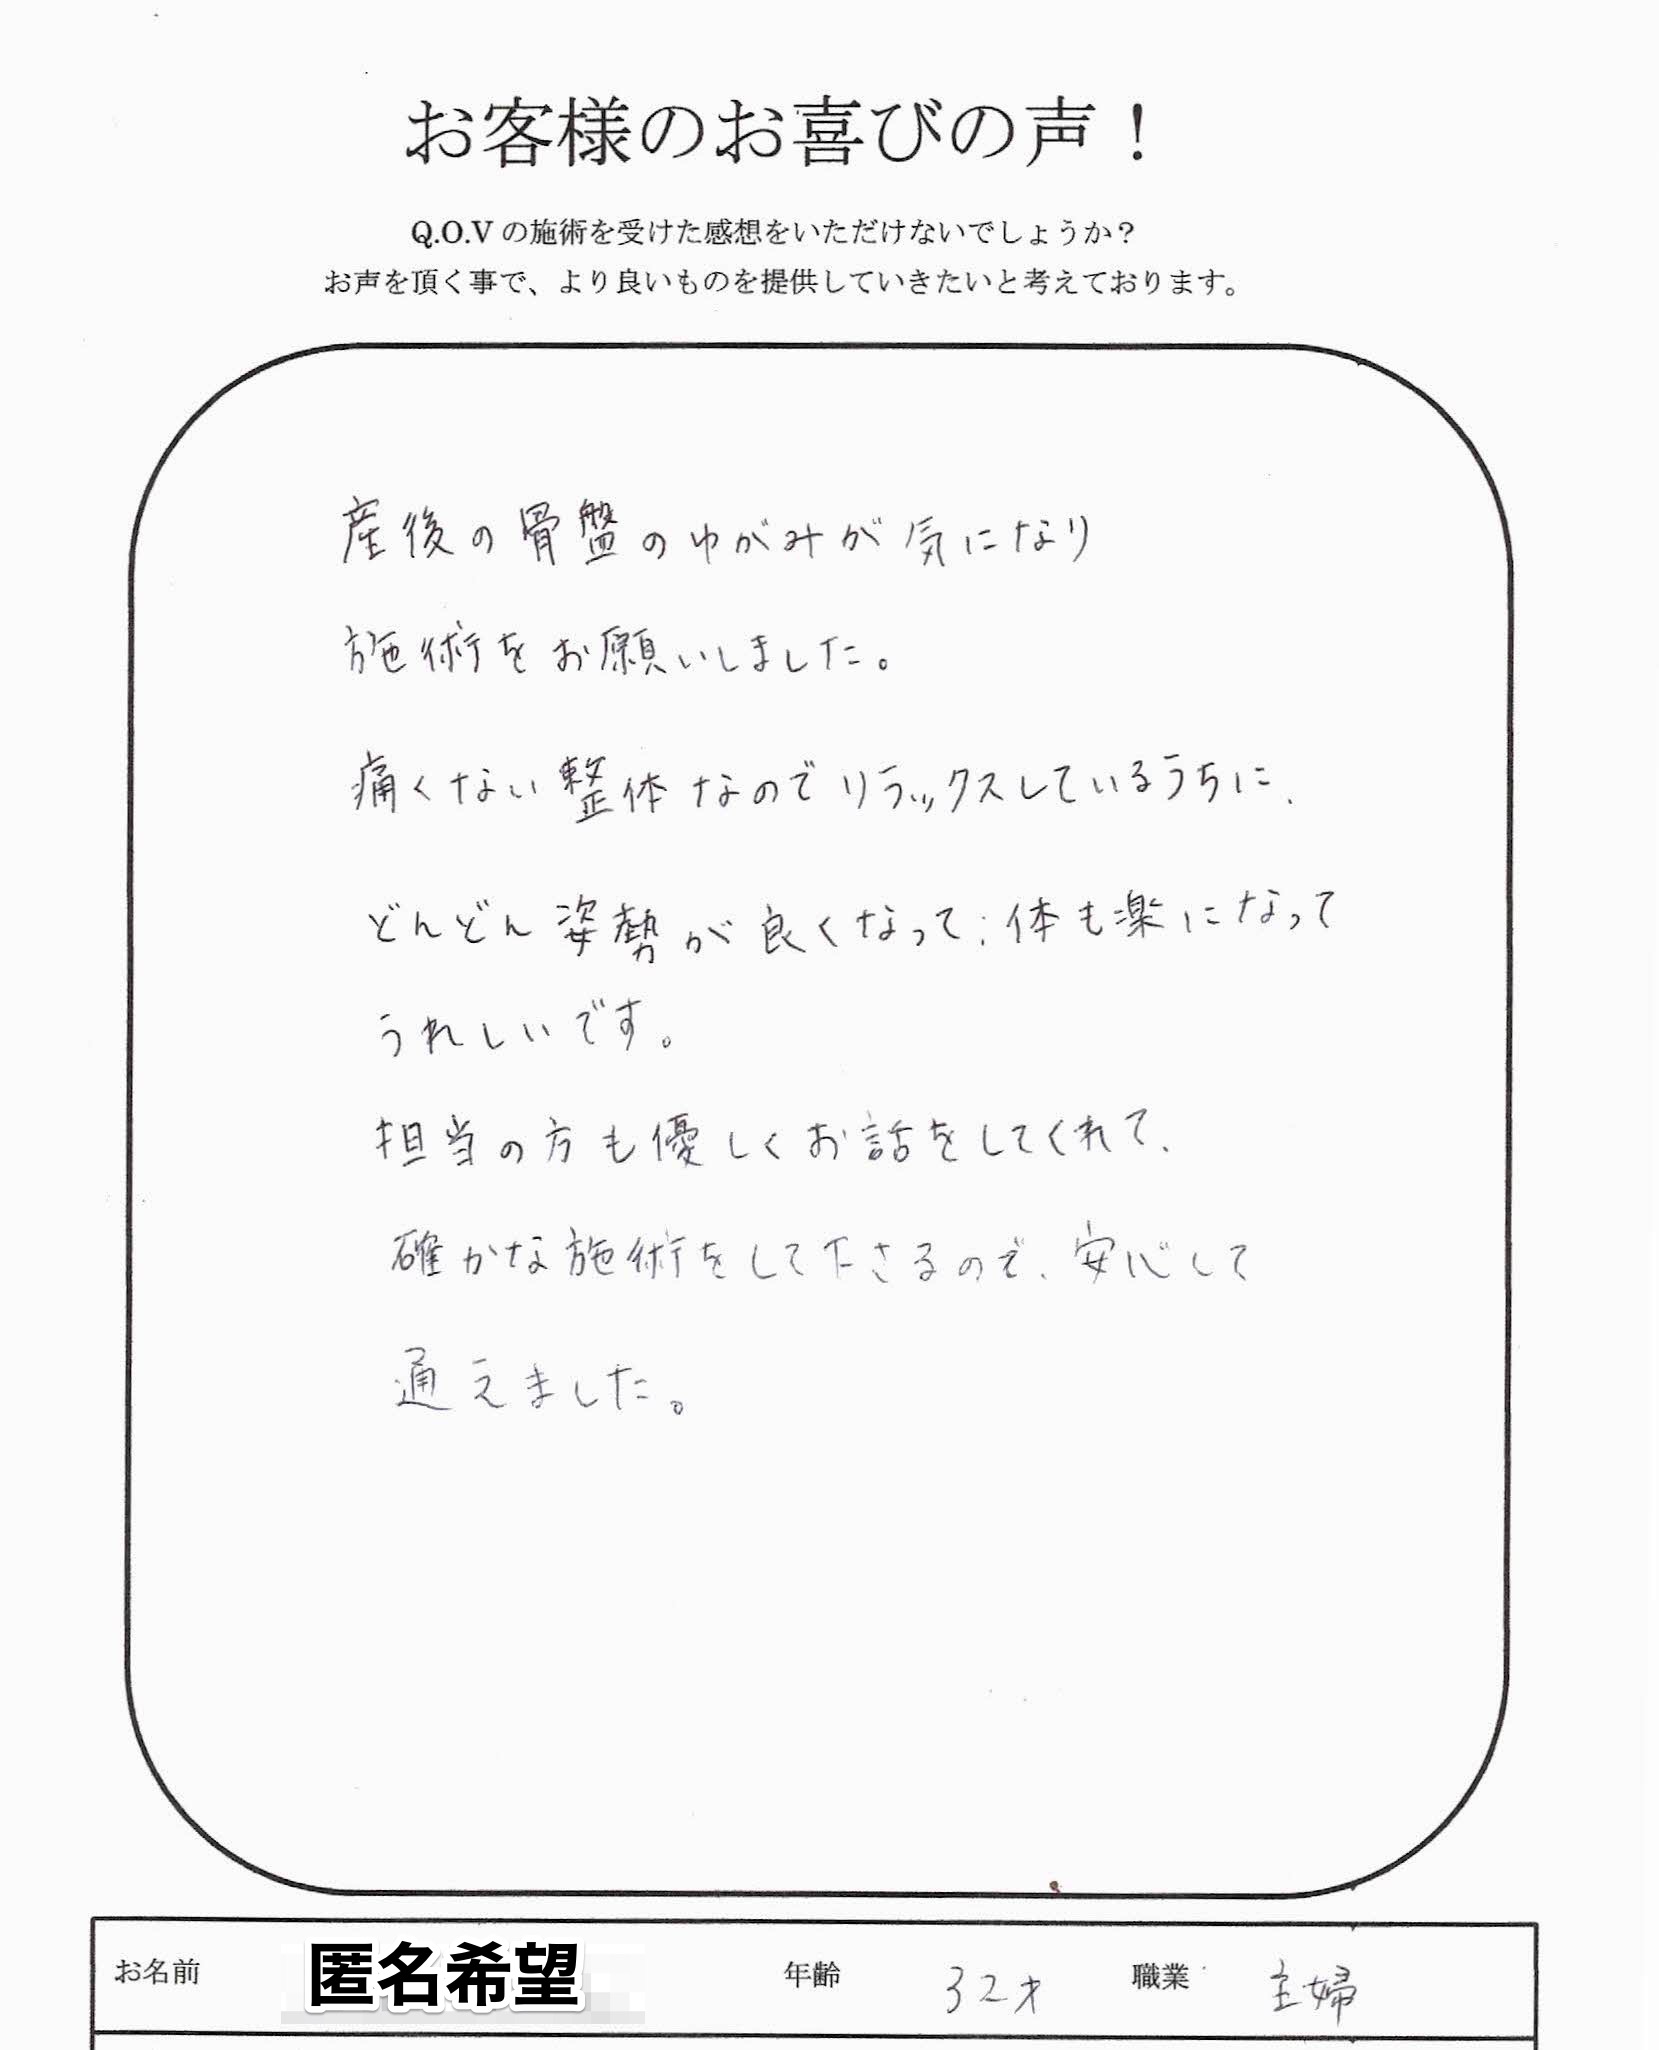 お客様のお喜びの声！
Q.O.Vの施術を受けた感想をいただけないでしょうか？
お声を頂く事で、より良いものを提供していきたいと考えております。
産後の骨盤のゆがみが気になり
施術をお願いしました。
痛くない整体なのでリラックスしているうちに、
どんどん姿勢が良くなって、体も楽になって
うれしいです。
担当の方も優しくお話をしてくれて、
確かな施術をして下さるので、安心して
通えました。
お名前 匿名希望 年齢 32才 職業 主婦